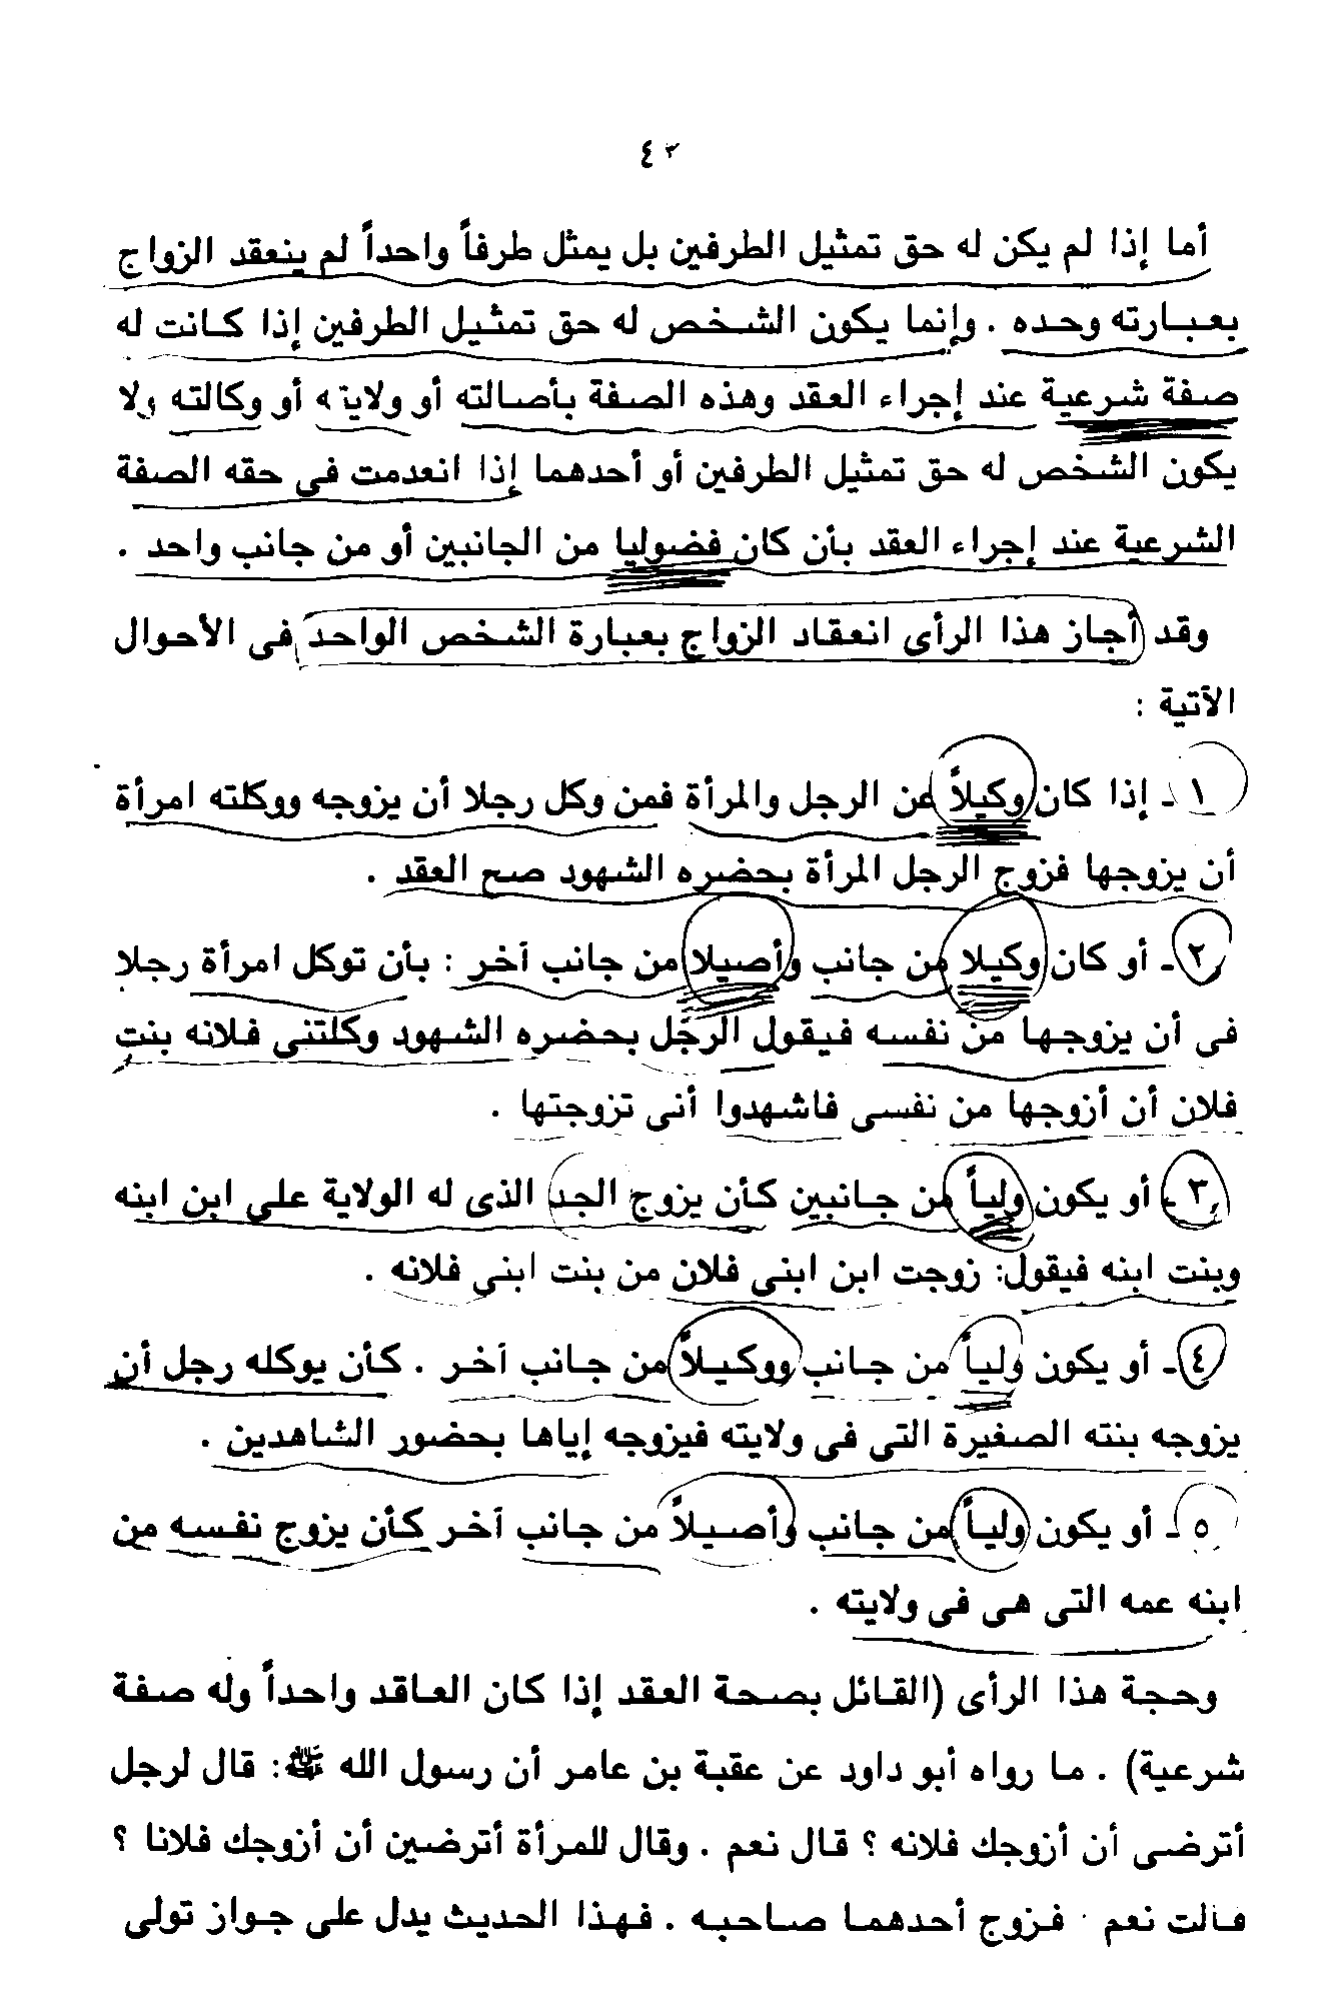 ٤٣
أما إذا لم يكن له حق تمثيل الطرفين بل يمثل طرفاً واحداً لم ينعقد الزواج
بعبارته وحده . وإنما يكون الشخص له حق تمثيل الطرفين إذا كانت له
صفة شرعية عند إجراء العقد وهذه الصفة بأصالته أو ولايته أو وكالته ولا
يكون الشخص له حق تمثيل الطرفين أو أحدهما إذا انعدمت فى حقه الصفة
الشرعية عند إجراء العقد بأن كان فضوليا من الجانبين أو من جانب واحد .
وقد أجاز هذا الرأى انعقاد الزواج بعبارة الشخص الواحد فى الأحوال
الآتية :
١ ـ إذا كان وكيلاً عن الرجل والمرأة فمن وكل رجلا أن يزوجه ووكلته امرأة
أن يزوجها فزوج الرجل المرأة بحضره الشهود صح العقد .
٢ ـ أو كان وكيلا من جانب وأصيلا من جانب آخر : بأن توكل امرأة رجلا
فى أن يزوجها من نفسه فيقول الرجل بحضره الشهود وكلتنى فلانه بنت
فلان أن أزوجها من نفسى فاشهدوا أنى تزوجتها .
٣ ـ أو يكون ولياً من جانبين كأن يزوج الجد الذى له الولاية على ابن ابنه
وبنت ابنه فيقول: زوجت ابن ابنى فلان من بنت ابنى فلانه .
٤ ـ أو يكون ولياً من جانب ووكيلاً من جانب آخر . كأن يوكله رجل أن
يزوجه بنته الصغيرة التى فى ولايته فيزوجه إياها بحضور الشاهدين .
٥ ـ أو يكون ولياً من جانب وأصيلاً من جانب آخر كأن يزوج نفسه من
ابنه عمه التى هى فى ولايته .
وحجة هذا الرأى (القائل بصحة العقد إذا كان العاقد واحداً وله صفة
شرعية) . ما رواه أبو داود عن عقبة بن عامر أن رسول الله ﷺ: قال لرجل
أترضى أن أزوجك فلانه ؟ قال نعم . وقال للمرأة أترضين أن أزوجك فلانا ؟
قالت نعم . فزوج أحدهما صاحبه . فهذا الحديث يدل على جواز تولى